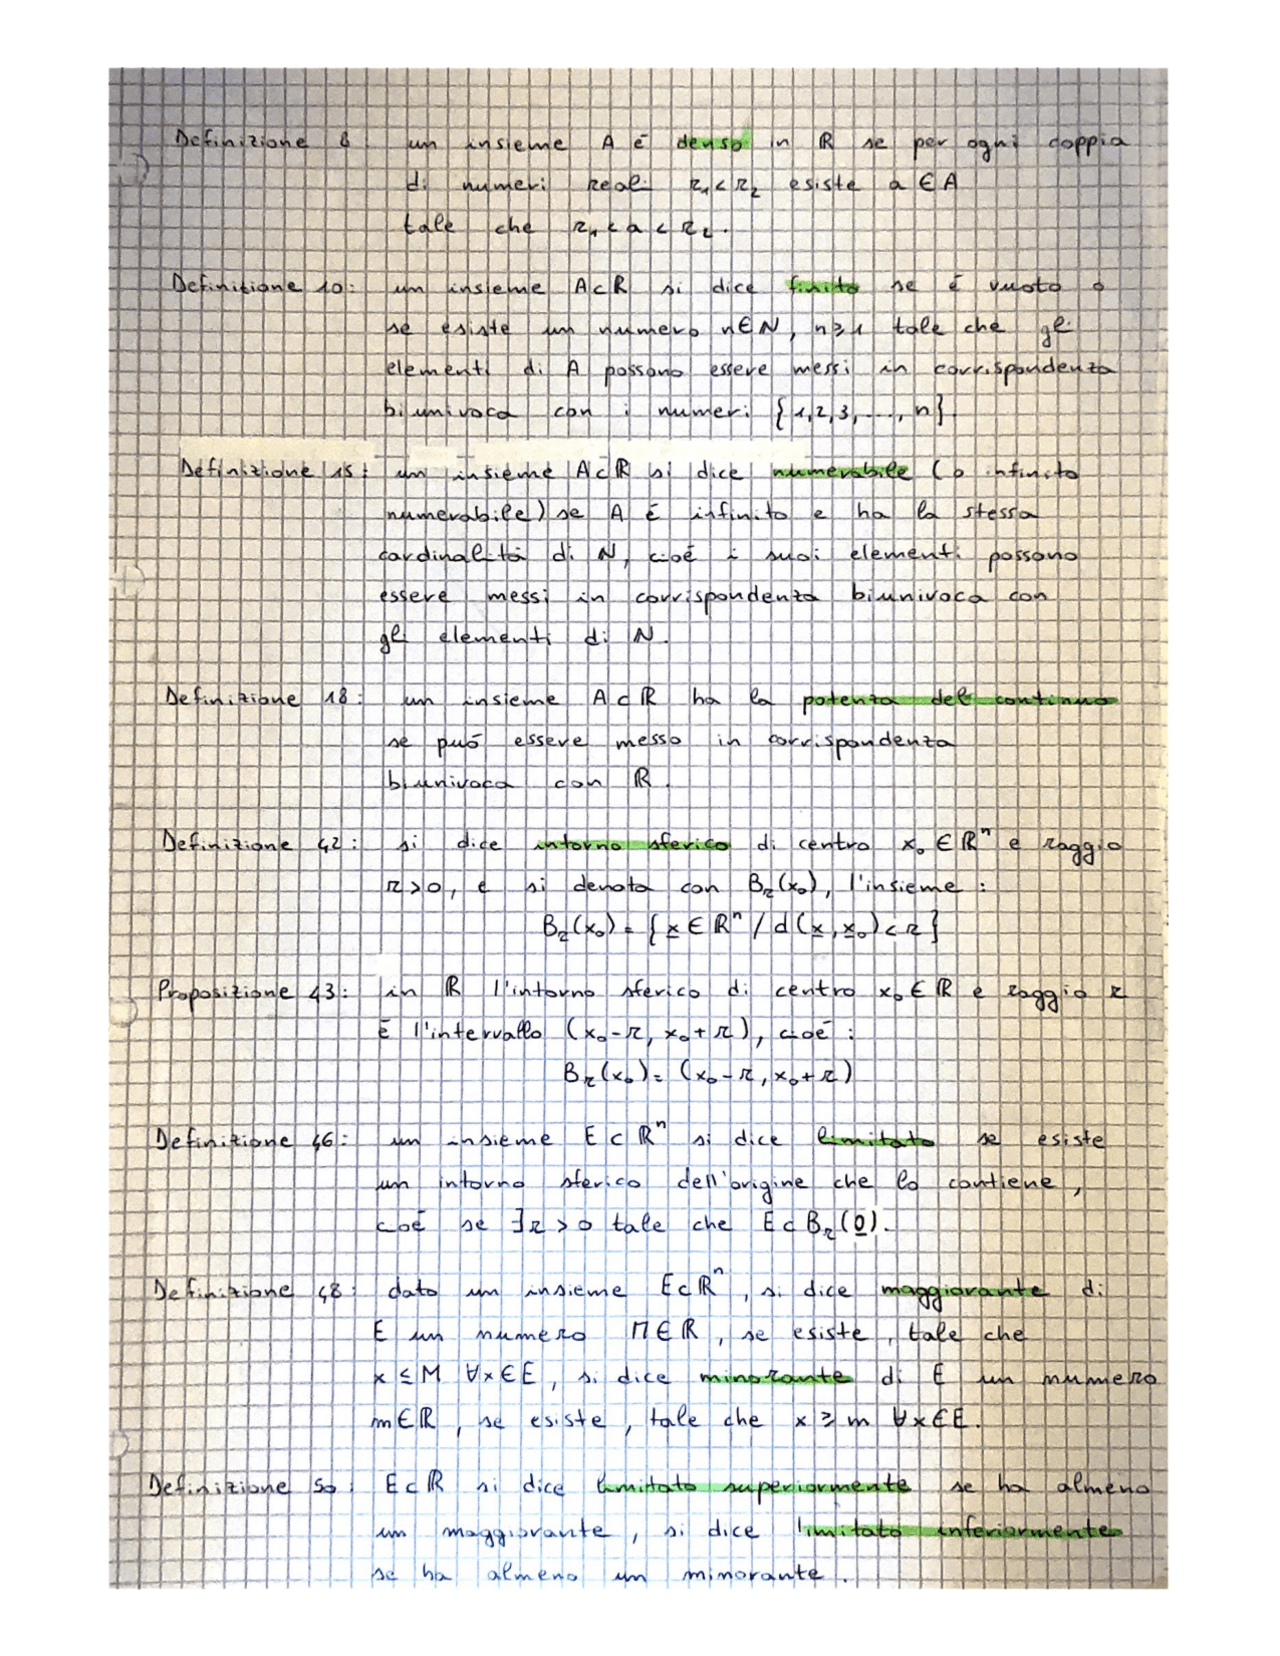 Definizione 6: un insieme A è denso in ℝ se per ogni coppia
di numeri reali r₁<r₂ esiste a ∈ A
tale che r₁<a<r₂.
Definizione 10: un insieme A⊂ℝ si dice finito se è vuoto o
se esiste un numero n∈N, n≥1 tale che gli
elementi di A possono essere messi in corrispondenza
biunivoca con i numeri {1,2,3,...., n}.
Definizione 15: un insieme A⊂ℝ si dice numerabile (o infinito
numerabile) se A è infinito e ha la stessa
cardinalità di N, cioè i suoi elementi possono
essere messi in corrispondenza biunivoca con
gli elementi di N.
Definizione 18: un insieme A⊂ℝ ha la potenza del continuo
se può essere messo in corrispondenza
biunivoca con ℝ.
Definizione 42: si dice intorno sferico di centro x₀∈ℝⁿ e raggio
r>0, e si denota con Bᵣ(x₀), l'insieme:
Bᵣ(x₀) = {x∈ℝⁿ / d(x,x₀)<r}
Proposizione 43: in ℝ l'intorno sferico di centro x₀∈ℝ e raggio r
è l'intervallo (x₀-r, x₀+r), cioè:
Bᵣ(x₀)= (x₀-r, x₀+r)
Definizione 46: un insieme E⊂ℝⁿ si dice limitato se esiste
un intorno sferico dell'origine che lo contiene,
cioè se ∃r>0 tale che E⊂Bᵣ(0).
Definizione 48: dato un insieme E⊂ℝⁿ, si dice maggiorante di
E un numero M∈ℝ, se esiste, tale che
x≤M ∀x∈E, si dice minorante di E un numero
m∈ℝ, se esiste, tale che x≥m ∀x∈E.
Definizione 50: E⊂ℝ si dice limitato superiormente se ha almeno
un maggiorante, si dice limitato inferiormente
se ha almeno un minorante.